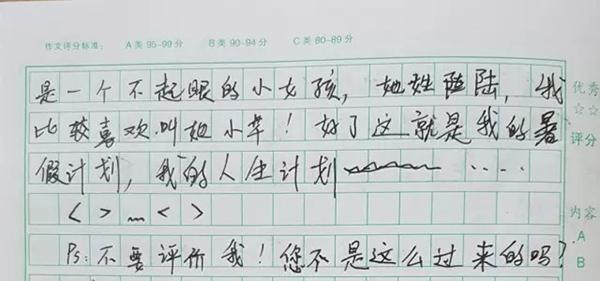 作文评分标准: A类 95-99分 B类 90-94分 C类 80-89分
是一个不起眼的小女孩,她姓陆,我
优秀
☆☆
比较喜欢叫她小芊!好了这就是我的暑
评分
假计划,我的人生计划~~~~ ····
< > … < >
内容
Ps:不要评价我!您不是这么过来的吗?
A
B